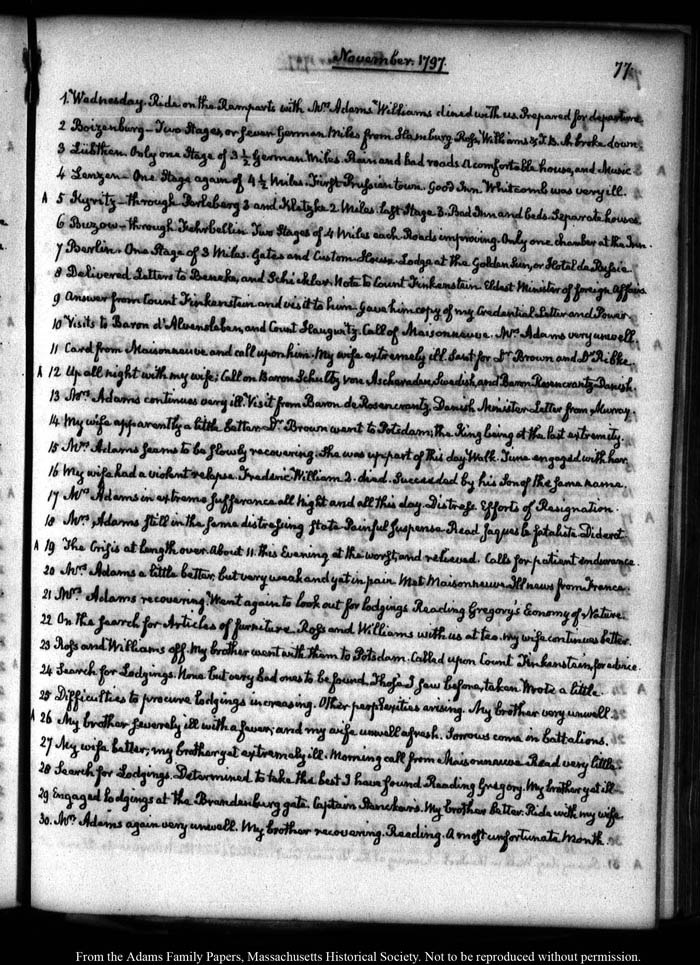 November. 1797.
77.
1. Wednesday. Ride on the Ramparts with Mrs Adams. Williams dined with us. Prepared for departure.
2 Boizenburg_ Two Stages, or seven German Miles from Hamburg. Ross, Williams & T.B.A. broke down.
3 Lübthen. Only one Stage of 3½ German Miles. Rain and bad roads. A comfortable house, and Music
4 Lenzen_ One Stage again of 4½ Miles. First Prussian town. Good Inn. Whitcomb was very ill.
A 5 Kyritz_ through Perleberg 3 and Kletzke 2 Miles. last Stage 3. Bad Inn and beds. Separate houses
6 Buzow_ through Fehrbellin. Two Stages of 4 Miles each. Roads improving. Only one chamber at the Inn.
7 Berlin. One Stage of 3 Miles. Gates and Custom-House. Lodge at the Golden Sun, or Hotel de Russie
8 Delivered Letters to Beneke, and Schickler. Note to Count Finkenstein. Eldest Minister of foreign Affairs
9 Answer from Count Finkenstein and visit to him. Gave him copy of my Credential Letter and Power
10 Visits to Baron d'Alvensleben, and Count Haugwitz. Call of Maisonneuve. Mrs Adams very unwell.
11 Card from Maisonneuve and call upon him. My wife extremely ill. Sent for Dr Brown and Dr Ribke.
A 12 Up all night with my wife; Call on Baron Schultz von Ascheraden, Swedish, and Baron Rosencrantz, Danish.
13 Mrs Adams continues very ill. Visit from Baron de Rosencrantz, Danish Minister. Letter from Murray.
14 My wife apparently a little better. Dr Brown went to Potsdam; the King being at the last extremity.
15 Mrs Adams seems to be slowly recovering. She was up part of this day. Walk. Time engaged with her.
16 My wife had a violent relapse. Frederic William 2. died. Succeeded by his Son of the same name.
17 Mrs Adams in extreme sufferance all Night and all this day. Distress. Efforts of Resignation.
18 Mrs Adams still in the same distressing state. Painful suspense. Read Jaques le fataliste. Diderot.
A 19 The Crisis at length over. About 11. this Evening at the worst, and relieved. Calls for patient endurance.
20 Mrs Adams a little better, but very weak and yet in pain. Met Maisonneuve. Ill news from France.
21 Mrs Adams recovering. Went again to look out for lodgings. Reading Gregory's Economy of Nature.
22 On the search for Articles of furniture. Ross and Williams with us at tea. my wife continues better.
23 Ross and Williams off. My brother went with them to Potsdam. Called upon Count Finkenstein, for advice.
24 Search for Lodgings. None but very bad ones to be found. Those I saw before, taken. Wrote a little.
25 Difficulties to procure lodgings increasing. Other perplexities arising. My brother very unwell.
A 26 My brother severely ill with a fever; and my wife unwell afresh. Sorrows come in battalions.
27 My wife better; my brother yet extremely ill. Morning call from Maisonneuve. Read very little
28 Search for Lodgings. Determined to take the best I have found. Reading Gregory. My brother yet ill_
29 Engaged Lodgings at the Brandenburg gate. Captain My brother better. Ride with my wife.
30. Mrs Adams again very unwell. My brother recovering. Reading. A most unfortunate Month.
From the Adams Family Papers, Massachusetts Historical Society. Not to be reproduced without permission.